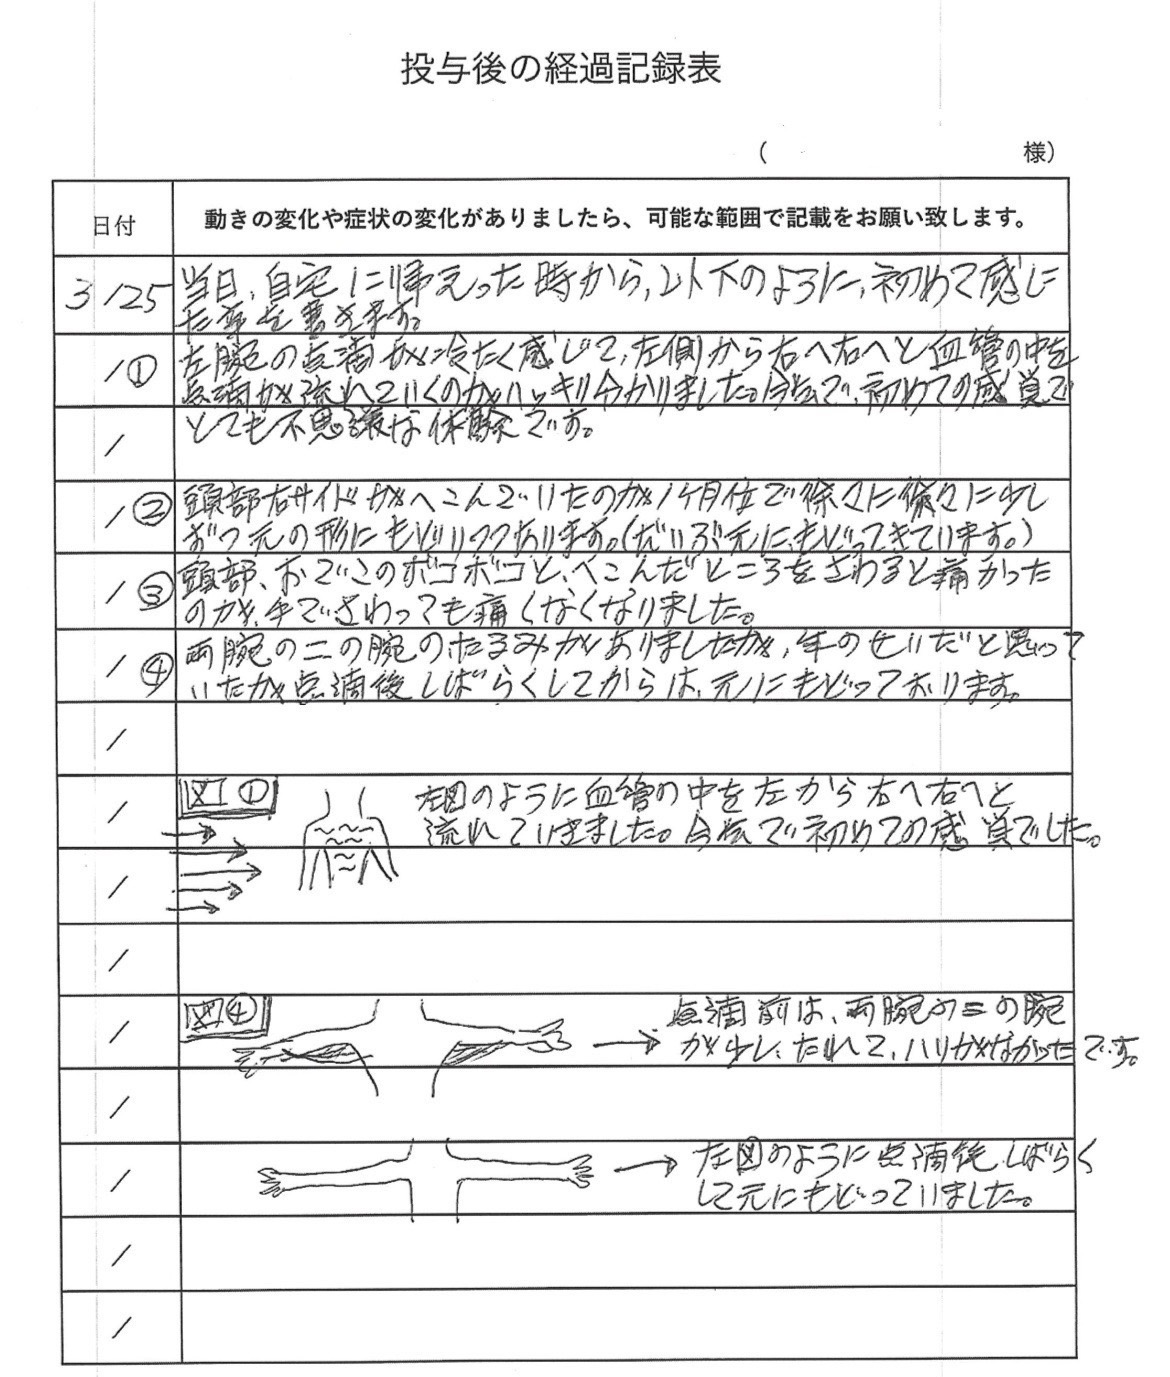 投与後の経過記録表
( 様)
日付
動きの変化や症状の変化がありましたら、可能な範囲で記載をお願い致します。
3/25
当日、自宅に帰えった時から、以下のように、初めて感じ
た事を書きます。
/①
左腕の点滴が冷たく感じて、左側から右へ右へと血管の中を
点滴が流れていくのがハッキリ分かりました。今まで、初めての感覚で
/
とても不思議な体験です。
/②
頭部右サイドがへこんでいたのが1ケ月位で徐々に徐々に少し
ずつ元の形にもどりつつあります。(だいぶ元にもどってきています。)
/③
頭部、おでこのボコボコと、へこんだところをさわると痛かった
のが、手でさわっても痛くなくなりました。
/④
両腕の二の腕のたるみがありましたが、年のせいだと思って
いたが点滴後しばらくしてからは、元にもどっております。
/
/
図①
左図のように血管の中を左から右へ右へと
流れていきました。今まで初めての感覚でした。
/
/
/
図④
点滴前は、両腕の二の腕
が少し、たれて、ハリがなかったです。
/
/
左図のように点滴後、しばらく
して元にもどっていました。
/
/